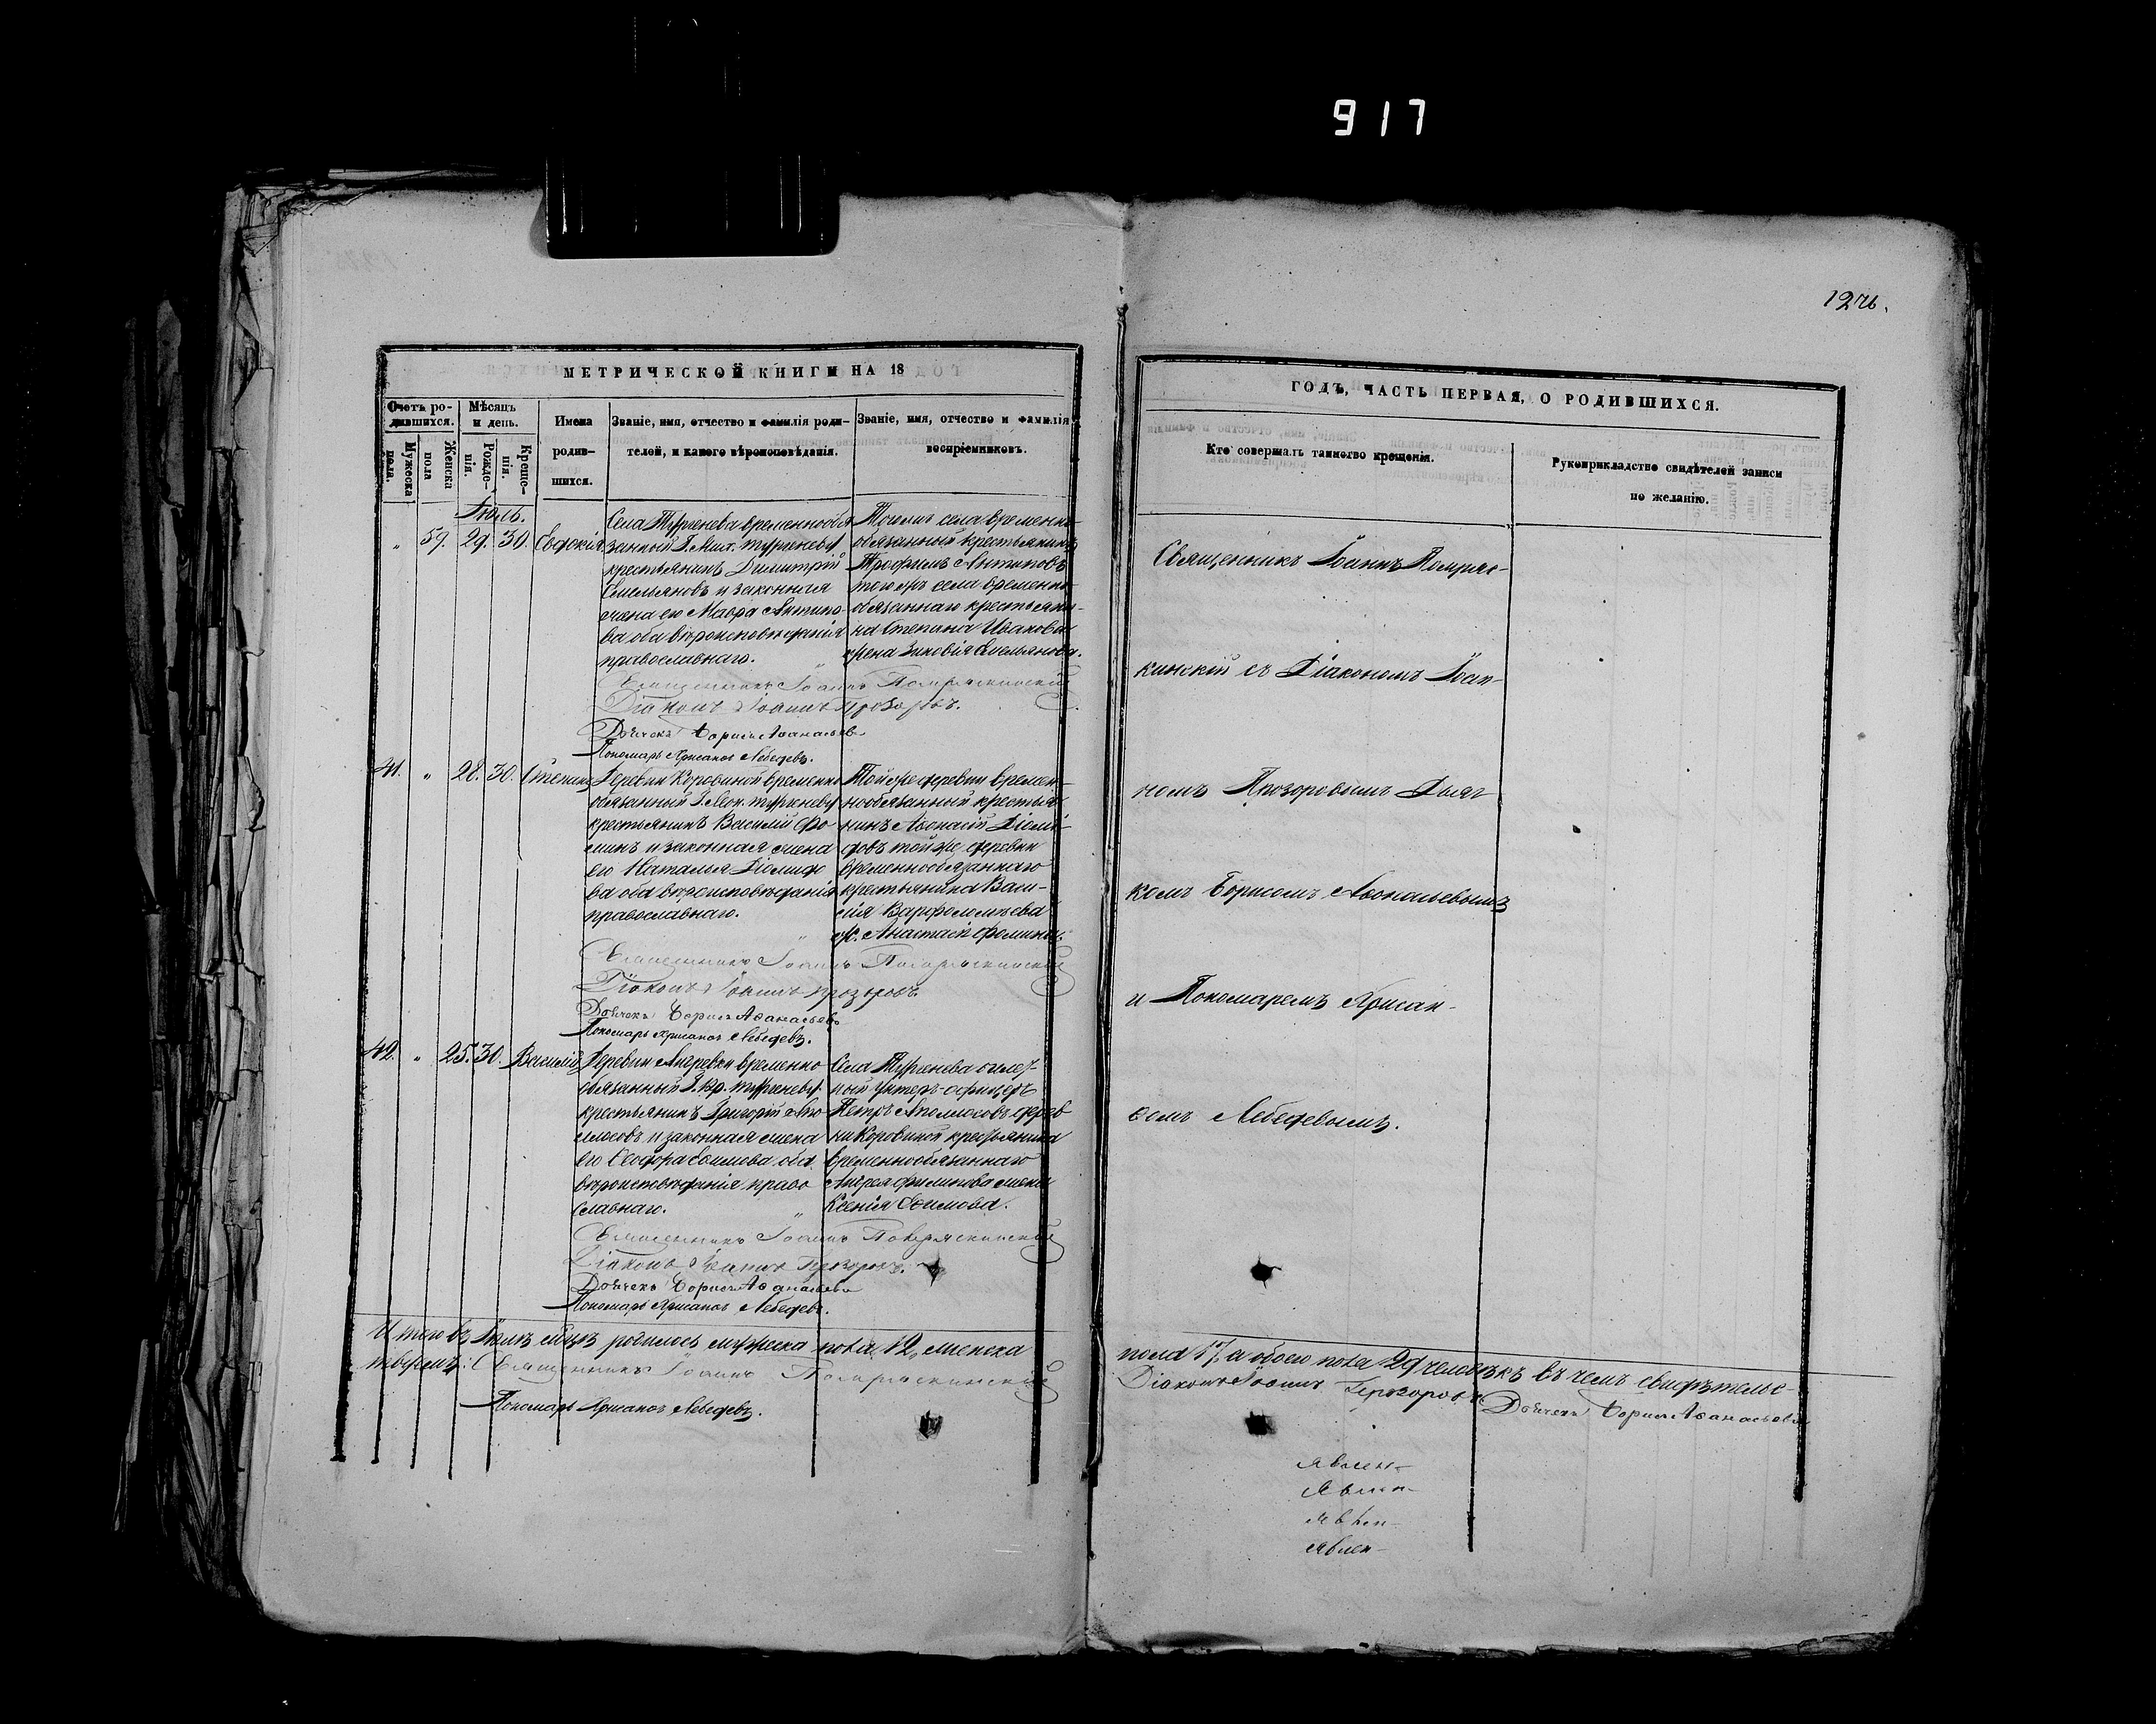 917
12
МЕТРИЧЕСКОЙ КНИГИ НА 18
Очетъ ро-
дившихся.
Мѣсяцъ
и день.
Имена
родив-
шихся.
Званіе, имя, отчество и фамилія роди-
телей, и какого вѣроисповѣданія.
Званіе, имя, отчество и фамилія
воспріемниковъ.
Мужеска
пола.
Женска
пола
Рожде-
нія.
Креще-
нія.
Іюль.
„ 59. 29. 30. Евдокія
Села Тургенева временнообя
занный Г. Мих. Тургеневу
крестьянинъ Димитрій
Емельяновъ и законная
жена его Мавра Антипо-
ва оба вѣроисповѣданія
православнаго.
Тогожъ села временно-
обязанный крестьянинъ
Трофимъ Антиповъ
тогожъ села временно-
обязаннаго крестьяни-
на Степана Иванова
жена Зиновія Емельянова.
Священникъ Іоаннъ
Діаконъ Іоаннъ Прозоровъ.
Дьячекъ Борисъ Аѳанасьевъ
Пономарь Хрисанѳъ Лебедевъ.
41. „ 28. 30. Степанъ
Деревни Коровиной временно
обязанный Г. Тургеневу
крестьянинъ Василій Фо
минъ и законная жена
его Наталья Діомидо
ва оба вѣроисповѣданія
православнаго.
Тойже деревни времен-
нообязанный крестья
нинъ Аѳонасій Діоми-
довъ тойже деревни
временнообязаннаго
крестьянина Васи-
лія Варфоломѣева
ж. Анастасія Фомина.
Священникъ Іоаннъ
Діаконъ Іоаннъ Прозоровъ.
Дьячекъ Борисъ Аѳанасьевъ
Пономарь Хрисанѳъ Лебедевъ.
42. „ 25. 30. Василій
Деревни временно
обязанный Г. Тургеневу
крестьянинъ Григорій Апо
лосовъ и законная жена
его Ѳеодора Ефимова оба
вѣроисповѣданія право
славнаго.
Села Тургенева
ный Унтеръ-офицеръ
Петръ Аполлосовъ дерев
ни Коровиной крестьянина
временнообязаннаго
Андрея Филипова жена
Ксенія Ефимова.
Священникъ Іоаннъ
Діаконъ Іоаннъ Прозоровъ.
Дьячекъ Борисъ Аѳанасьевъ
Пономарь Хрисанѳъ Лебедевъ.
Итого въ Іюлѣ м-цѣ родилось мужеска пола 12, женска
твуемъ: Священникъ Іоаннъ
Пономарь Хрисанѳъ Лебедевъ.
ГОДЪ, ЧАСТЬ ПЕРВАЯ, О РОДИВШИХСЯ.
Кто совершалъ таинство крещенія.
Рукоприкладство свидѣтелей записи
по желанію.
Священникъ Іоаннъ
кинскій съ Діакономъ Іоан-
номъ Прозоровымъ Дьяч
комъ Борисомъ Аѳонасьевымъ
и Пономаремъ Хрисан-
ѳомъ Лебедевымъ.
пола 17, а обоего пола 29 человѣкъ въ чемъ свидѣтельс-
Діаконъ Іоаннъ Прозоровъ Дьячекъ Борисъ Аѳанасьевъ
явлен-
явлен-
явлен-
явлен-